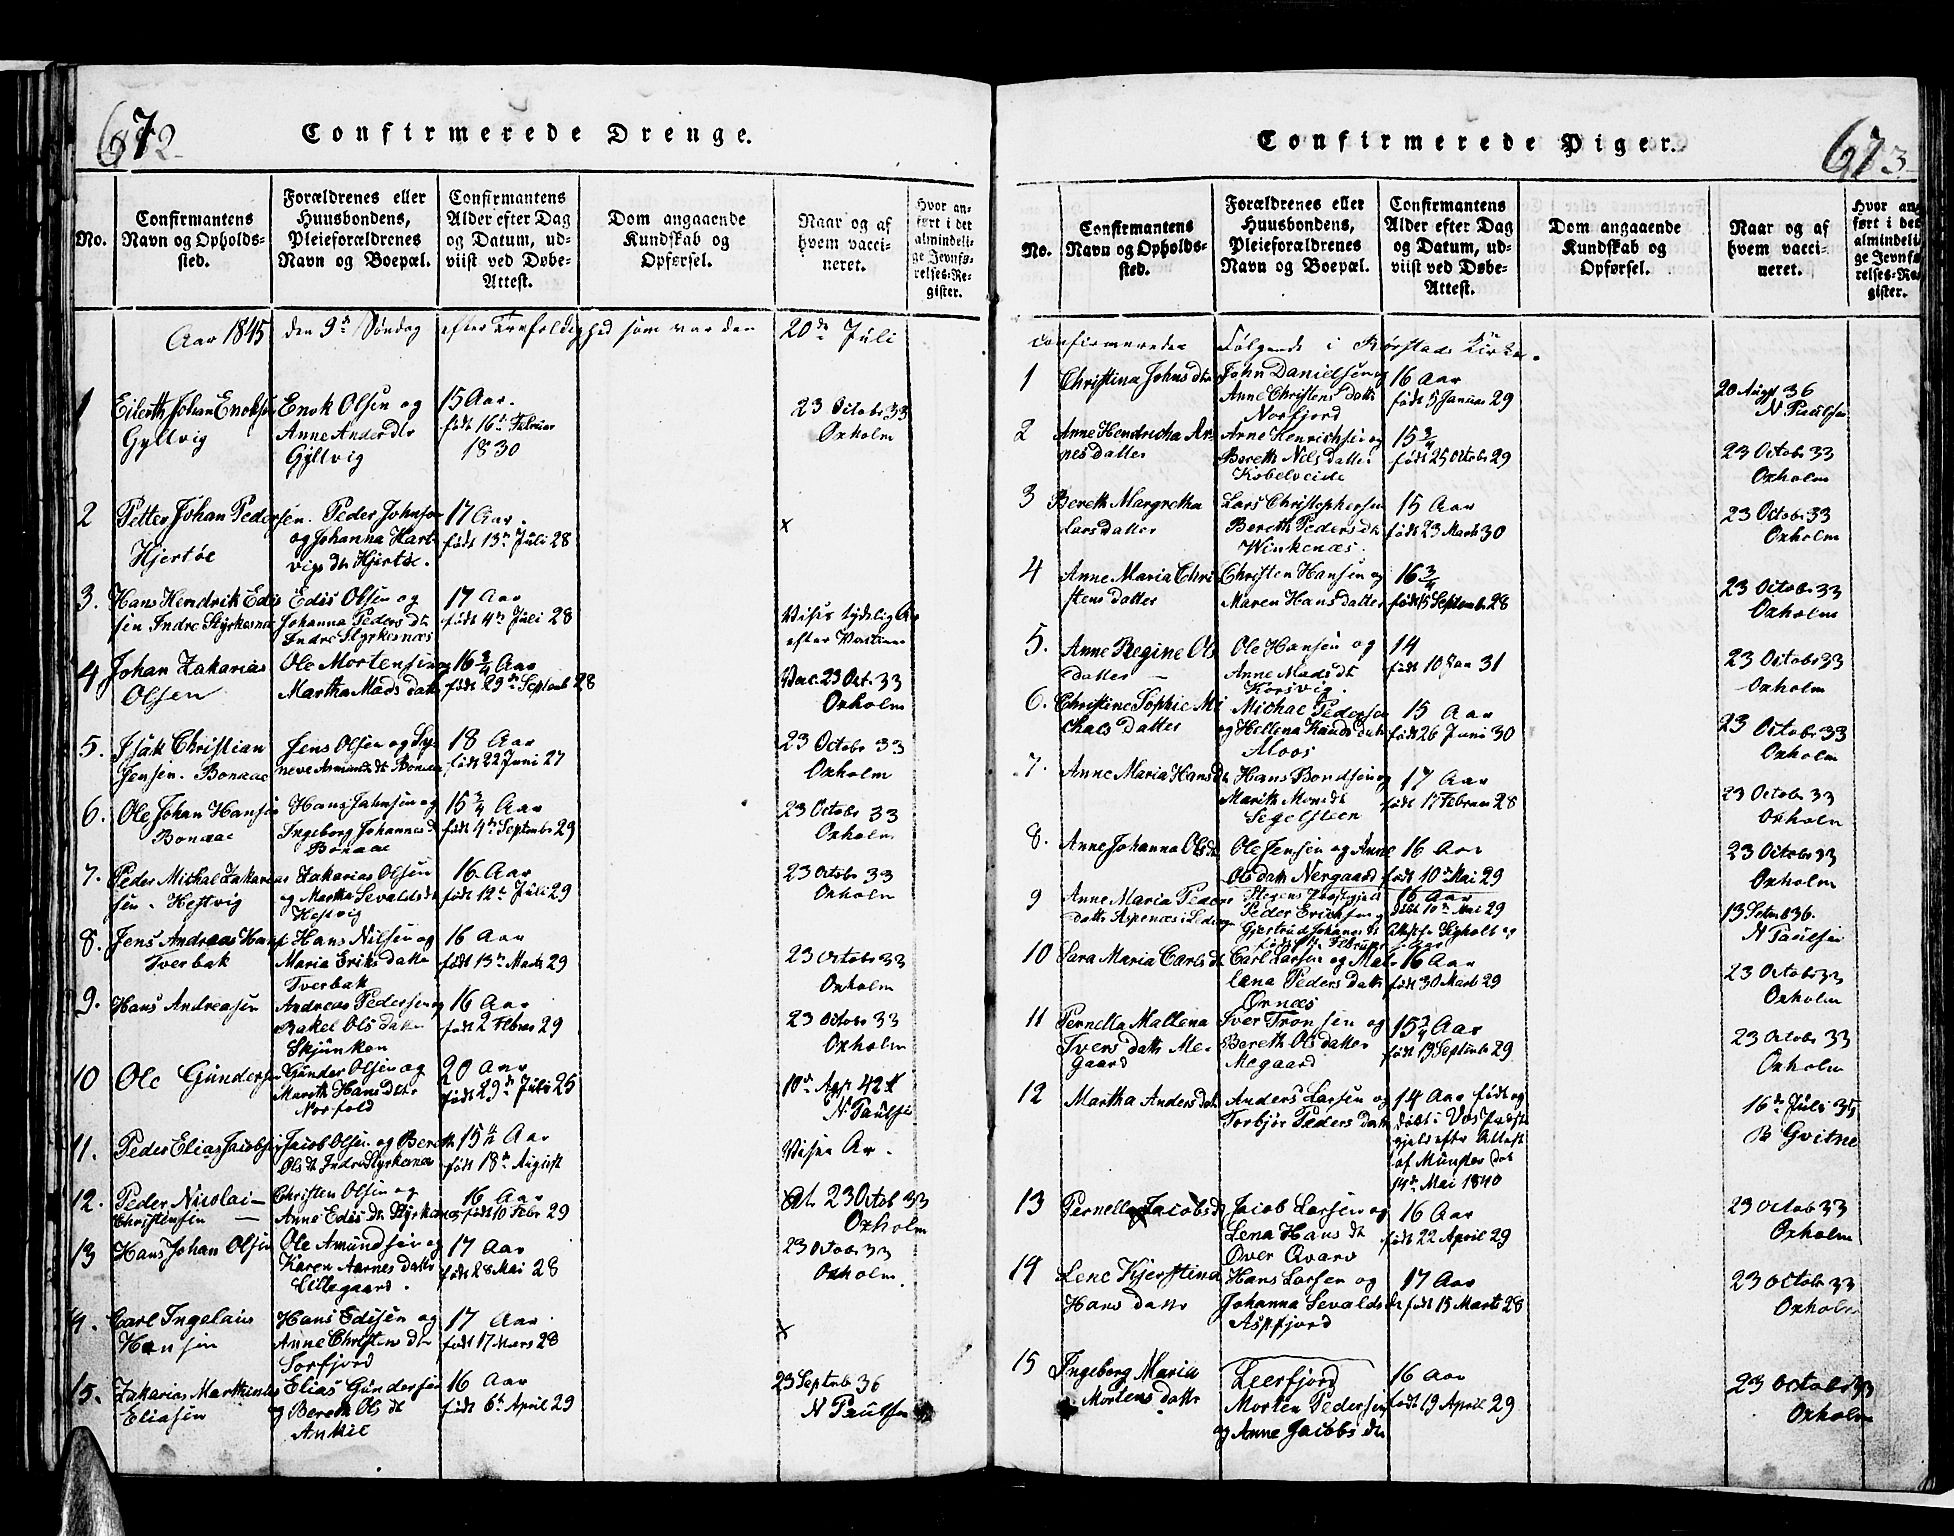 672
Confirmerede Drenge.
No.
Confirmantens
Navn og Opholds-
sted.
Forældrenes eller
Huusbondens,
Pleieforældrenes
Navn og Boepæl.
Confirmantens
Alder efter Dag
og Datum, ud-
viist ved Døbe-
Attest.
Dom angaaende
Kundskab og
Opførsel.
Naar og af
hvem vacci-
neret.
Hvor an-
ført i det
almindeli-
ge Jevnfø-
relses-Re-
gister.
Aar 1845 den 9de Søndag efter Trefoldighed som var den 20de Juli
1 Eilerth Johan Enoksen Enok Olsen og 15 Aar. 23 Octobr 33
Gyltvig Anne Ander dtr født 16de Februar Oxholm
Gyltvig 1830
2 Petter Johan Pedersen. Peder Johnsen 17 Aar. x
og Johanna Hart- født 13de Juli 28
Hjertøe vigs dtr Hjertøe.
3. Hans Hendrik Edis Edis Olsen og 17 Aar Viser tydelig Ar
sen Indre Styrkesnæs Johanna Peders dtr født 4de Juli 28 efter Vaccinen
Indre Styrkesnæs
4 Johan Zakarias Ole Mortensen og 16 3/4 Aar Vacc. 23 Oct. 33
Olsen Martha Mads datter født 29de Septemb 28 Oxholm
5. Isak Christian Jens Olsen og Sy- 18 Aar 23 Octobr 33
Jensen. Bonaae neve Asmunds dtr Bonaae født 22 Juni 27 Oxholm
6. Ole Johan Hansen Hans Jahnsen og 15 3/4 Aar 23 Octobr 33
Bonaae Ingeborg Johannes dtr født 4de Septembr 29 Oxholm
Bonaae
7. Peder Michal Zakarias Zakarias Olsen 16 Aar 23 Octobr 33
sen. Hestvig og Martha Sevalds dtr født 12te Juli 29 Oxholm
Hestvig
8. Jens Andreas Hans Hans Nilsen og 16 Aar 23 Octobr 33
Tverbak Maria Eriks datter født 13de Marts 29 Oxholm
Tverbak
9. Hans Andreasen Andreas Pedersen og 16 Aar 23 Octobr 33
Rakel Ols datter født 2 Febr 29 Oxholm
Skjunken
10 Ole Gundersen Gunder Olsen og 20 Aar 10de Agst 42
Mareth Hans dtr født 29de Juli 25 N. Paulsen
Norfold
11. Peder Elias Jacobsen Jacob Olsen og Bereth 15 Aar Viser Ar.
Ols dt Indre Styrkesnæs født 18de August
12. Peder Nicolai Christen Olsen og 16 Aar 23 Octob 33
Christensen Anne Edis dtr Styrkesnæs født 10 Febr 29 Oxholm
13 Hans Johan Olsen Ole Amundsen og 17 Aar 23 Octob 33
Karen Aarnes datter født 28 Mai 28 Oxholm.
Lillegaard.
14. Carl Ingelaus Hans Edisen og 17 Aar x
Hansen Anne Christens dtr født 17 Mars 28
Sørfjord
15. Zakarias Marthinus Elias Gundersen 16 Aar 23 Septbr 36
Eliasen og Bereth Ols dt født 6te April 29 N Paulsen
673
Confirmerede Piger.
No.
Confirmantens
Navn og Opholds-
sted.
Forældrenes eller
Huusbondens,
Pleieforældrenes
Navn og Boepæl.
Confirmantens
Alder efter Dag
og Datum, ud-
viist ved Døbe-
Attest.
Dom angaaende
Kundskab og
Opførsel.
Naar og af
hvem vacci-
neret.
Hvor an-
ført i det
almindeli-
ge Jevnfø-
relses-Re-
gister.
confirmeredes Følgende i Rørstads Kirke.
1 Christina Johns dtr John Danielsen og 16 Aar 20 Augst 36
Anne Christens datter født 5 Januar 29 N Paulsen
Norfjord
2 Anne Hendricha Ar- Arne Henrichsen og 15 3/4 23 Octobr 33
nes datter Bereth Nils datter født 25 Octobr 29 Oxholm
Kobelveide
3 Bereth Margretha Lars Christephersen 15 Aar 23 Octobr 33
Lars datter Bereth Peders dtr født 23 Marts 30 Oxholm
Winkenæs.
4 Anne Maria Chri- Christen Hansen og 16 3/4 23 Octobr 33
stens datter Maren Hans datter født 5 Septembr 28 Oxholm
5. Anne Regine Ols Ole Hansen og 14 23 Octobr 33
datter Anne Mads dt født 10 Jan 31 Oxholm
Korsvig.
6. Christine Sophie Mi Michal Pedersen 15 Aar 23 Octobr 33
chals datter og Hellena Knuds datter født 26 Juni 30 Oxholm
Moos
7. Anne Maria Hans dt Hans Bondsen og 17 Aar 23 Octobr 33
Marith Mons dt født 17 Februar 28 Oxholm
Segelsteen
8. Anne Johanna Ols dt Ole Jensen og Anne 16 Aar 23 Octobr 33
Ols datt Nergaard født 10de Mai 29 Oxholm
9 Anne Maria Peders Stegens Præstegjeld 16 Aar 13 Setmb 36.
datter Aspenæs i Peder Erichsen og døbt 10de Mai 29 N Paulsen
Gjertrud Johannes dt
10 Sara Maria Carls dt Carl Larsen og Mal- 16 Aar 23 Octobr 33
lena Peders datter født 30 Marts 29 Oxholm
Ørnæs
11 Pernella Mallena Iver Tronsen og 15 3/4 Aar 23 Octobr 33
Ivers datter Me- Bereth Ols datter født 19 Septembr 29 Oxholm
gaard Megaard
12 Martha Anders datter Anders Larsen og 14 Aar født og 16de Juli 35
Torbjør Peders datter døbt i Vos Præste- Gvitne
gjeld efter Attest
af Munster dat
14de Mai 1840
13 Pernella Jacobs dt Jacob Larsen og 16 Aar 23 Octob 33
Lena Hans dt født 22 April 29 Oxholm
Over Qvarv
14 Lene Kjerstina Hans Larsen og 17 Aar 23 Octobr 33
Hans datter Johanna Sevalds dtr født 15 Marts 28 Oxholm
Aspfjord
15 Ingeborg Maria Leerfjord 16 Aar 23 Octobr 33
Mortens datter Morten Pedersen født 19 April 29 Oxholm
og Anne Jacobs dtr